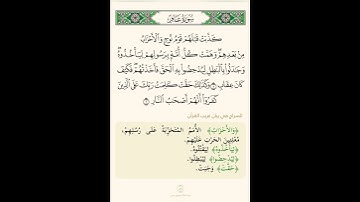 سُورَةُ غَافِرٍ
كَذَّبَتْ قَبْلَهُمْ قَوْمُ نُوحٍ وَالْأَحْزَابُ
مِنْ بَعْدِهِمْ وَهَمَّتْ كُلُّ أُمَّةٍ بِرَسُولِهِمْ لِيَأْخُذُوهُ
وَجَادَلُوا بِالْبَاطِلِ لِيُدْحِضُوا بِهِ الْحَقَّ فَأَخَذْتُهُمْ فَكَيْفَ
كَانَ عِقَابِ ۝ وَكَذَلِكَ حَقَّتْ كَلِمَتُ رَبِّكَ عَلَى الَّذِينَ
كَفَرُوا أَنَّهُمْ أَصْحَابُ النَّارِ ۝
السراج في بيان غريب القرآن
﴿وَالْأَحْزَابُ﴾ الأُمَمُ المُتَحَزِّبَةُ عَلَى رُسُلِهِمْ،
مُعْلِنِينَ الحَرْبَ عَلَيْهِمْ.
﴿لِيَأْخُذُوهُ﴾ لِيَقْتُلُوهُ.
﴿لِيُدْحِضُوا﴾ لِيُبْطِلُوا.
﴿حَقَّتْ﴾ وَجَبَتْ.